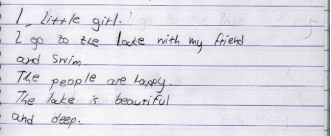 I, little girl.
I go to the lake with my friend
and swim.
The people are happy.
The lake is beautiful
and deep.